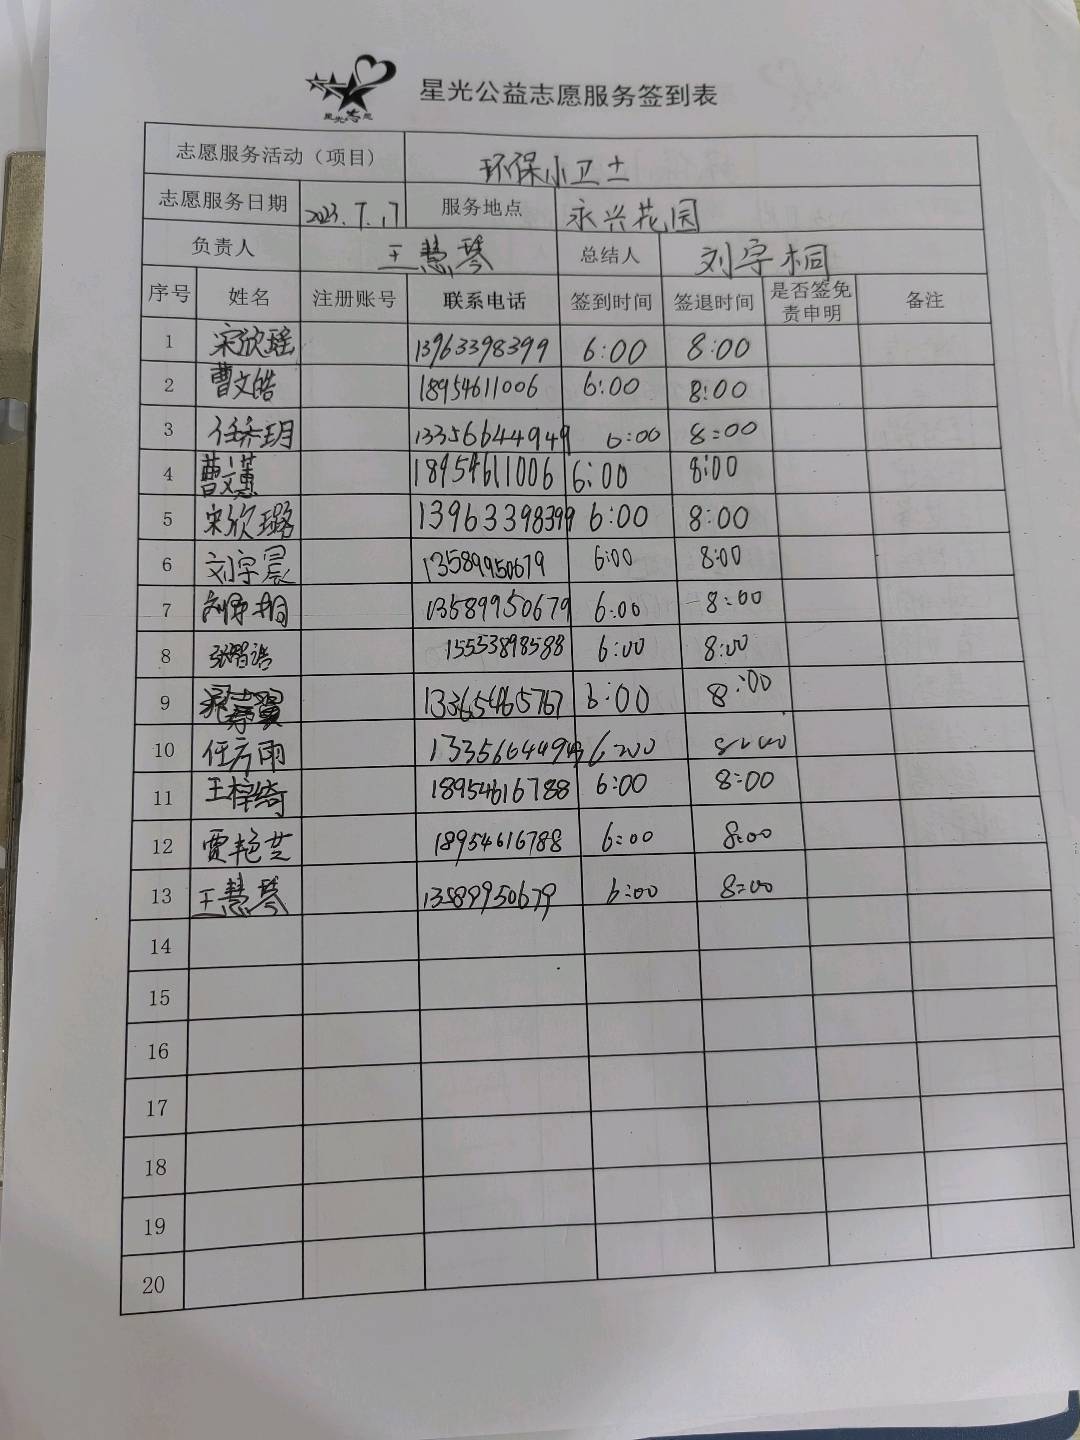 星光公益志愿服务签到表
志愿服务活动（项目） 环保小卫士
志愿服务日期 2023.7.17 服务地点 永兴花园
负责人 王慧琴 总结人 刘宇桐
序号 姓名 注册账号 联系电话 签到时间 签退时间 是否签免责申明 备注
1 宋欣瑶 13963398399 6:00 8:00
2 曹文皓 18954611006 6:00 8:00
3 任乔玥 13356644949 6:00 8:00
4 曹文蕙 18954611006 6:00 8:00
5 宋欣璐 13963398399 6:00 8:00
6 刘宇晨 13589950679 6:00 8:00
7 刘宇桐 13589950679 6:00 8:00
8 张智浩 15553898588 6:00 8:00
9 13365465767 6:00 8:00
10 任方雨 6:00 8:00
11 王梓绮 18954616788 6:00 8:00
12 贾艳芝 18954616788 6:00 8:00
13 王慧琴 13589950679 6:00 8:00
14
15
16
17
18
19
20